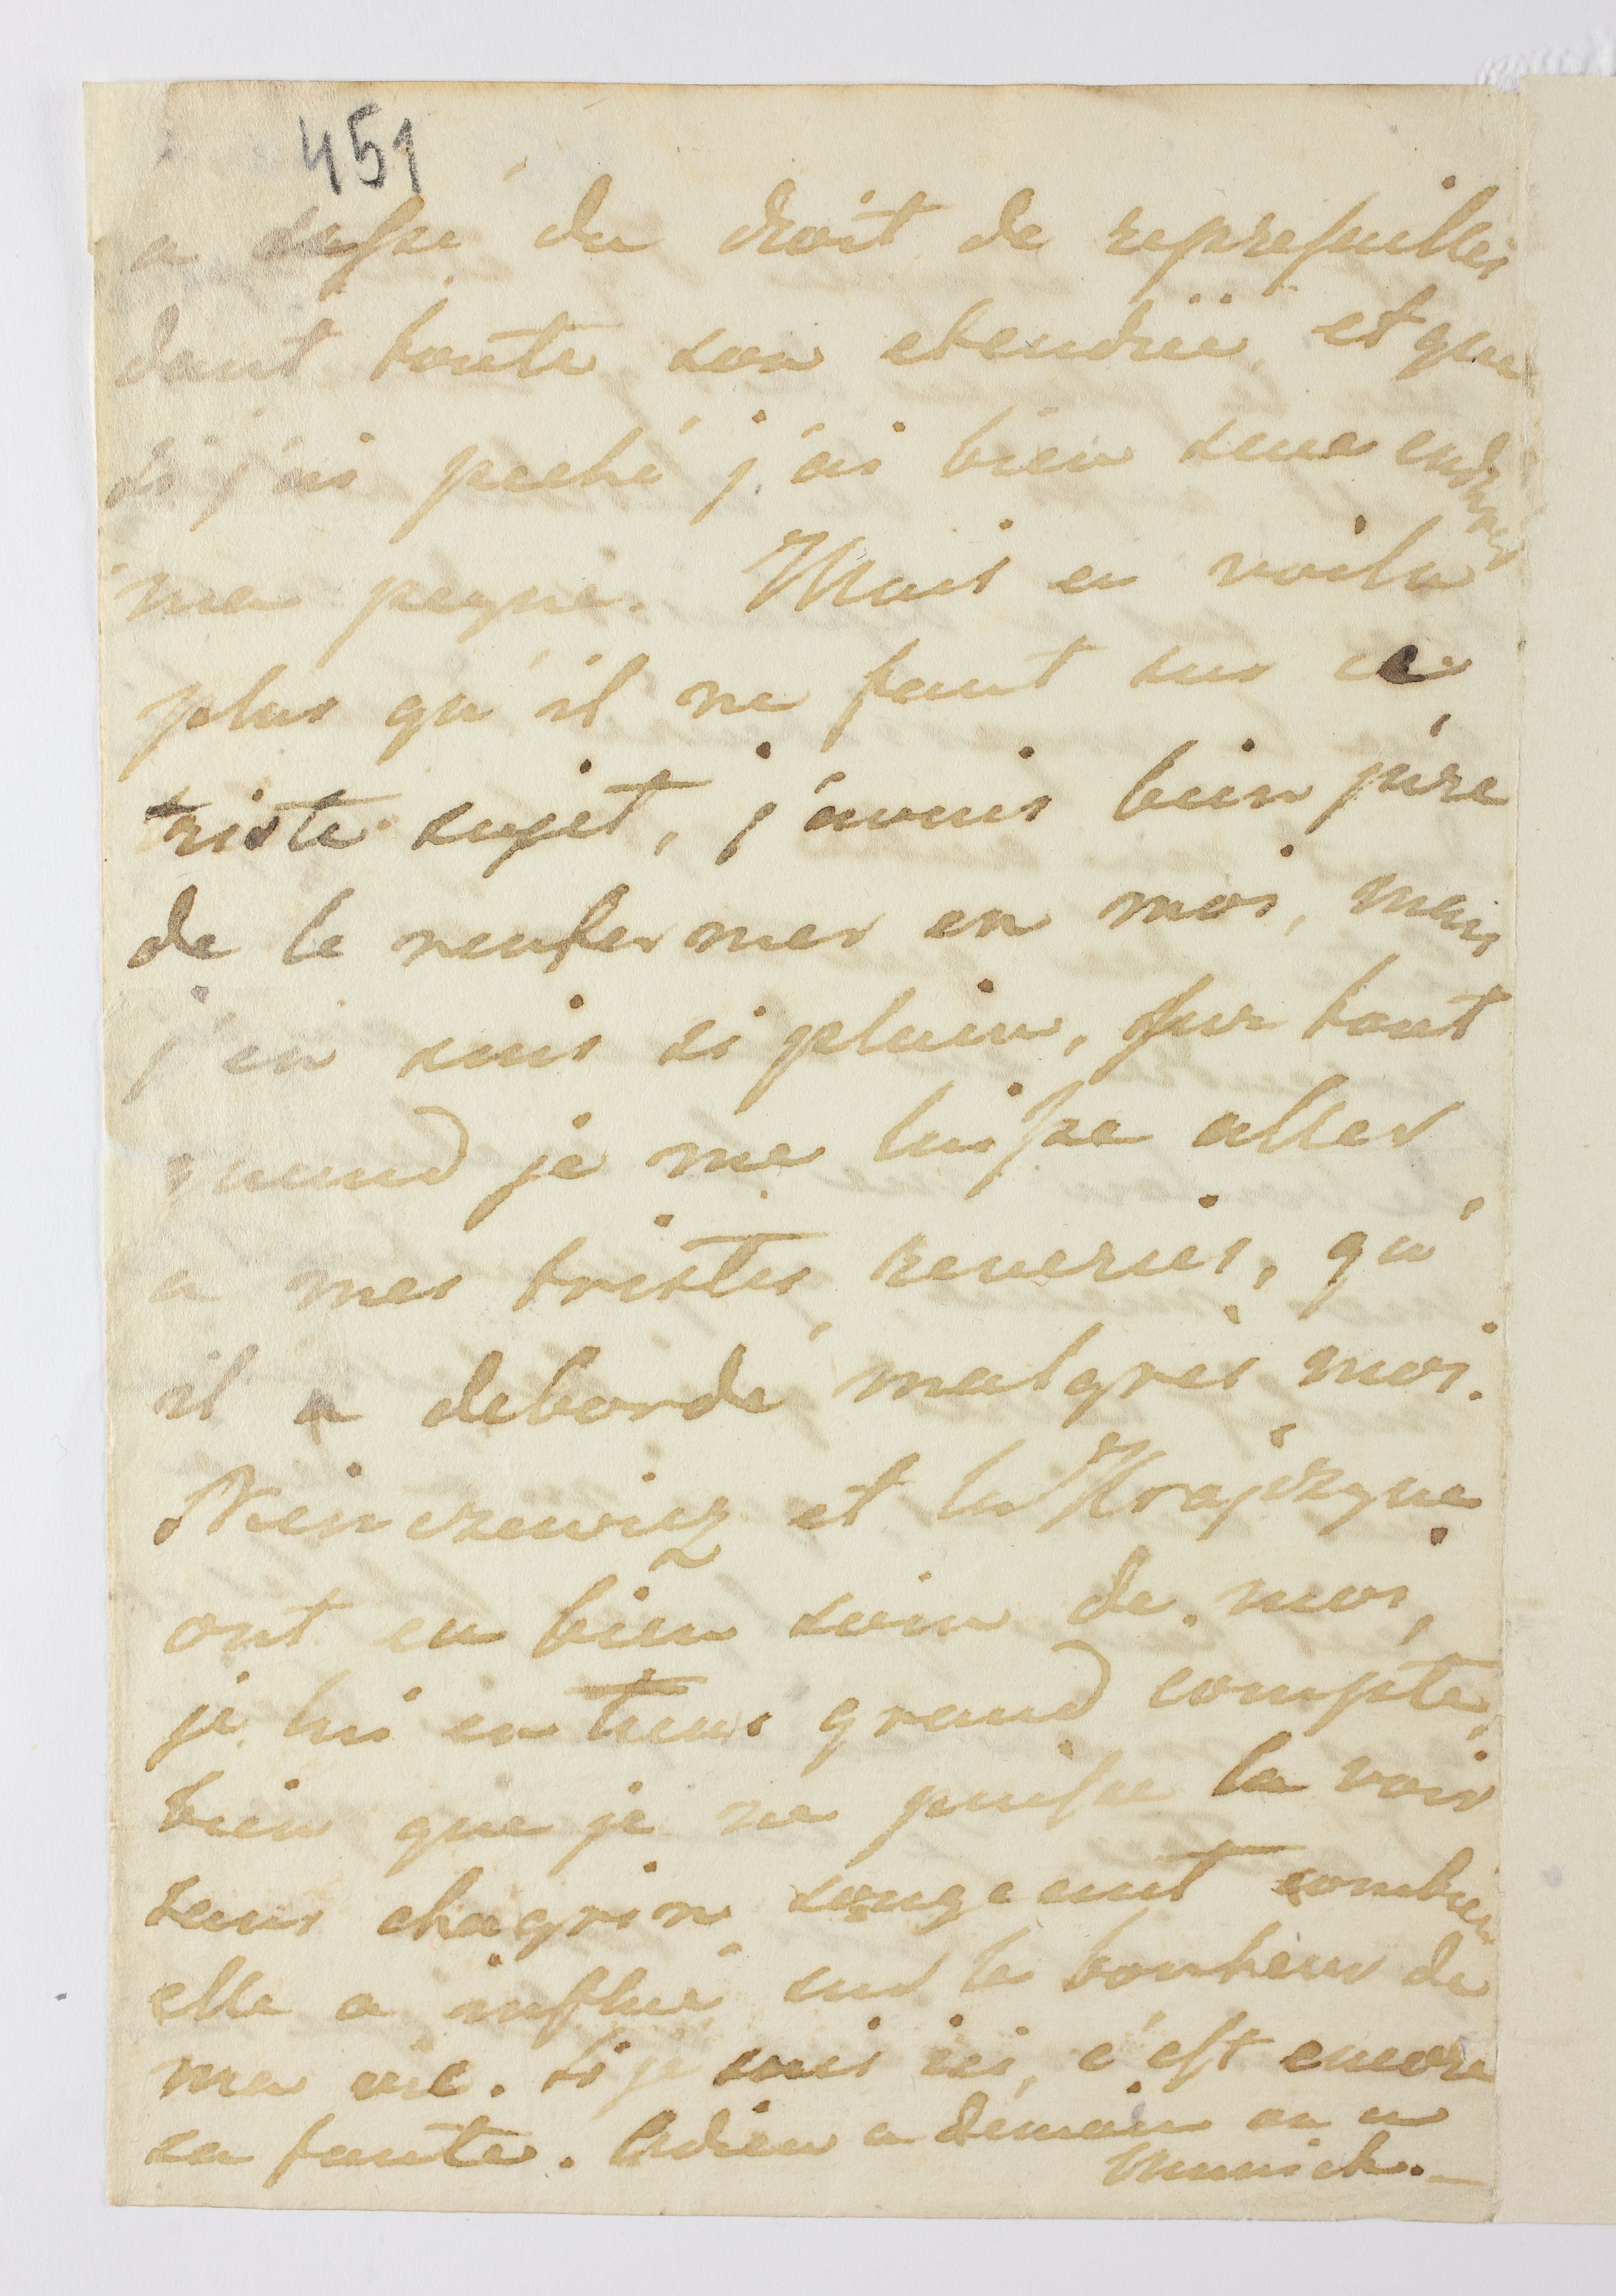 451
a du droit de represailles
dant toute son etendüe et que
si j'ai peché j'ai bien
ma peyne. Mais en voila
plus qu'il ne faut sus ce
triste sujet, j'avais bien jure
de le renfermer en moi, mais
j'en suis si plain, sur tout
quand je me laisse aller
a mes tristes reveries, qu'
il a debordé malgrés moi.
et la
ont eu bien soin de moi,
je lui en tiens grand compte,
bien que je ne puisse la voir
sans chagrin songeant combien
elle a influé sus le bonheur de
ma vie. si je suis ici, c'est encore
sa faute. Adieu a demain ou a
Munich. —